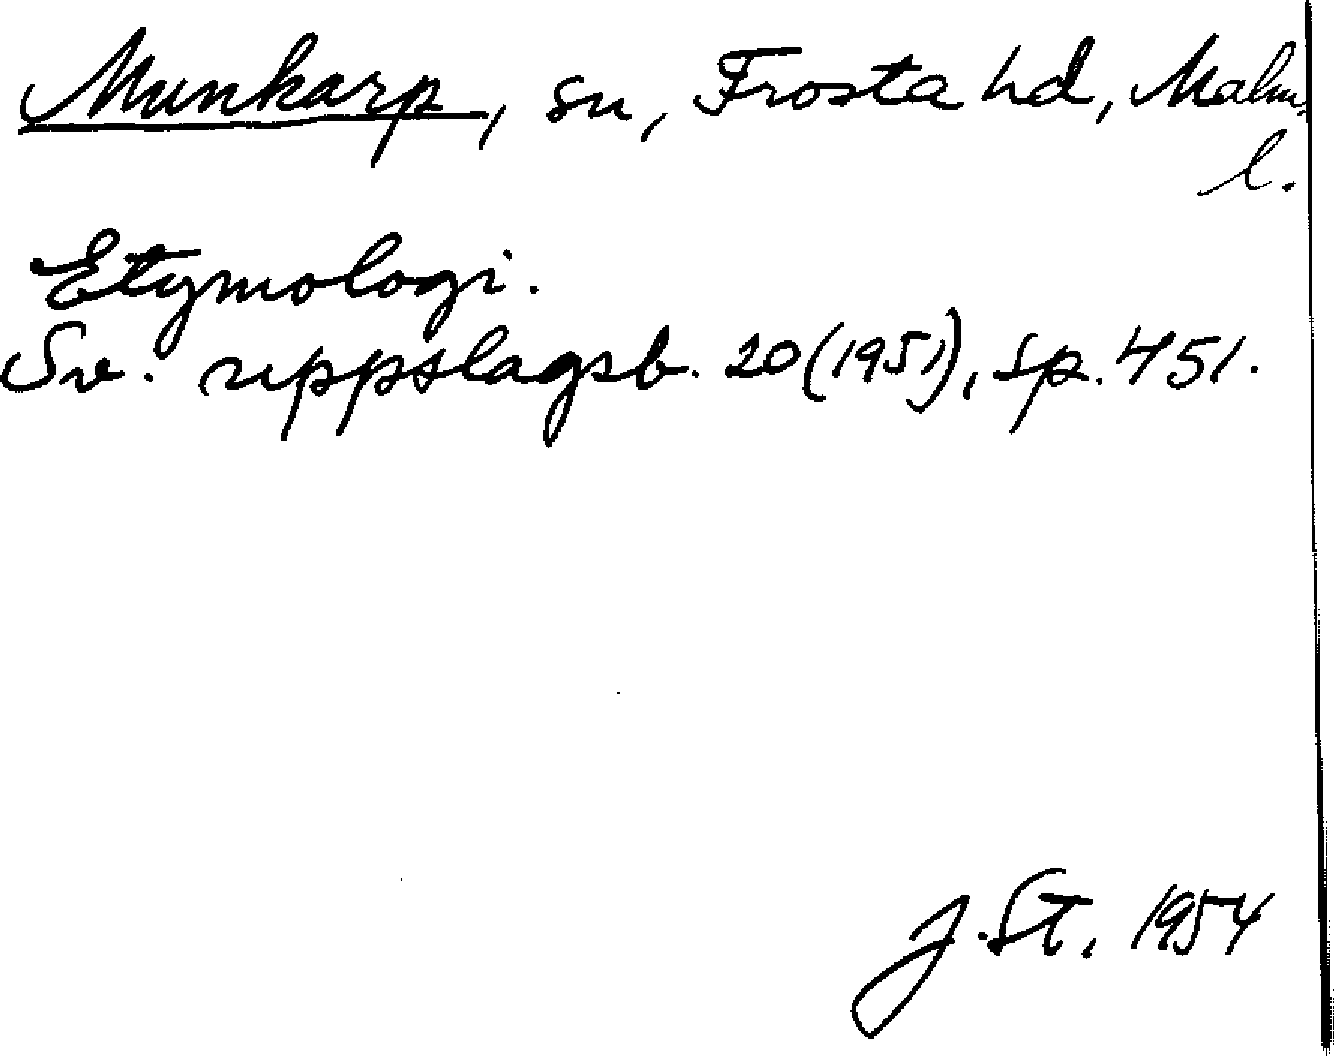 Munkarp, sn, Frosta hd, Malm.
l.
Etymologi.
Sv. uppslagsb. 20 (1951), sp. 451.
J. St. 1954